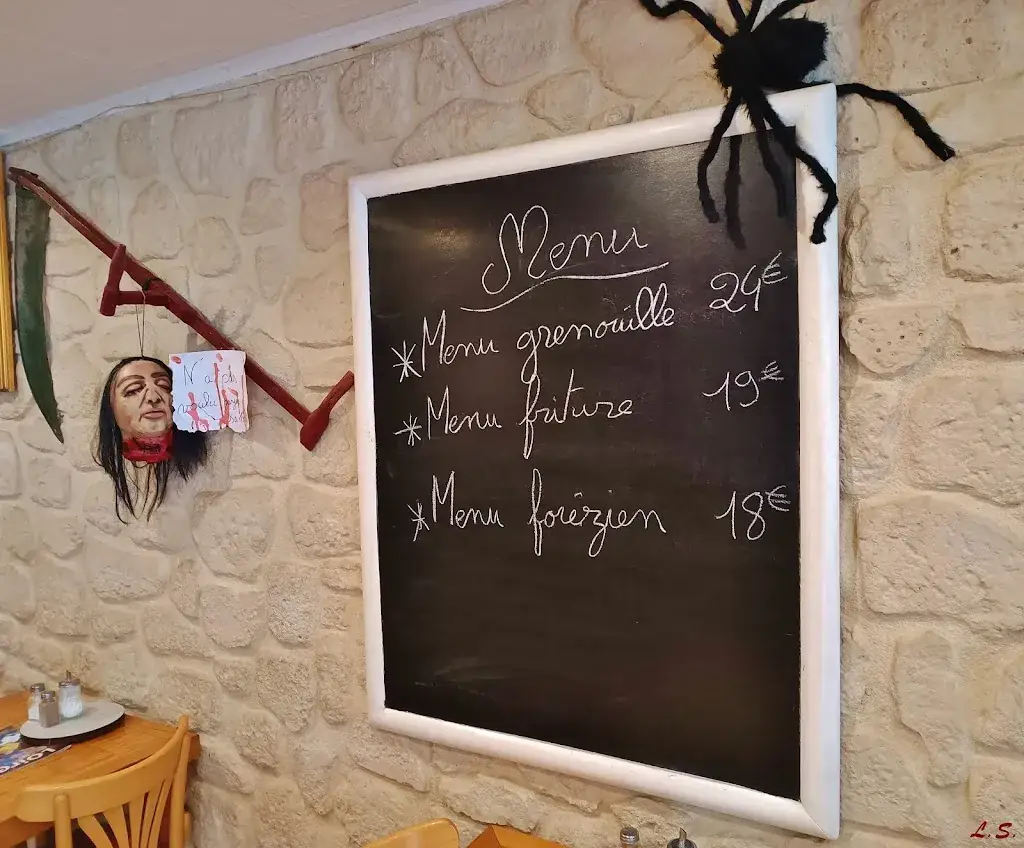 Menu
*Menu grenouille 24€
*Menu friture 19€
*Menu forézien 18€
N'a
voulu
L.S.